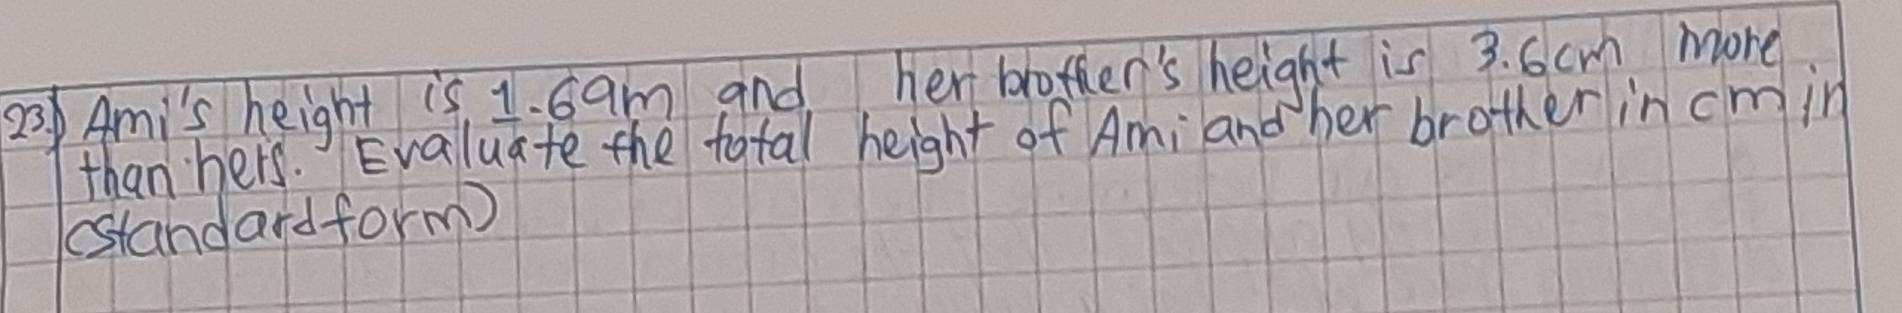 23.) Ami's height is 1.69m and her brother's height is 3.6cm more
than hers. Evaluate the total height of Ami and her brother in cm in
(standard form)